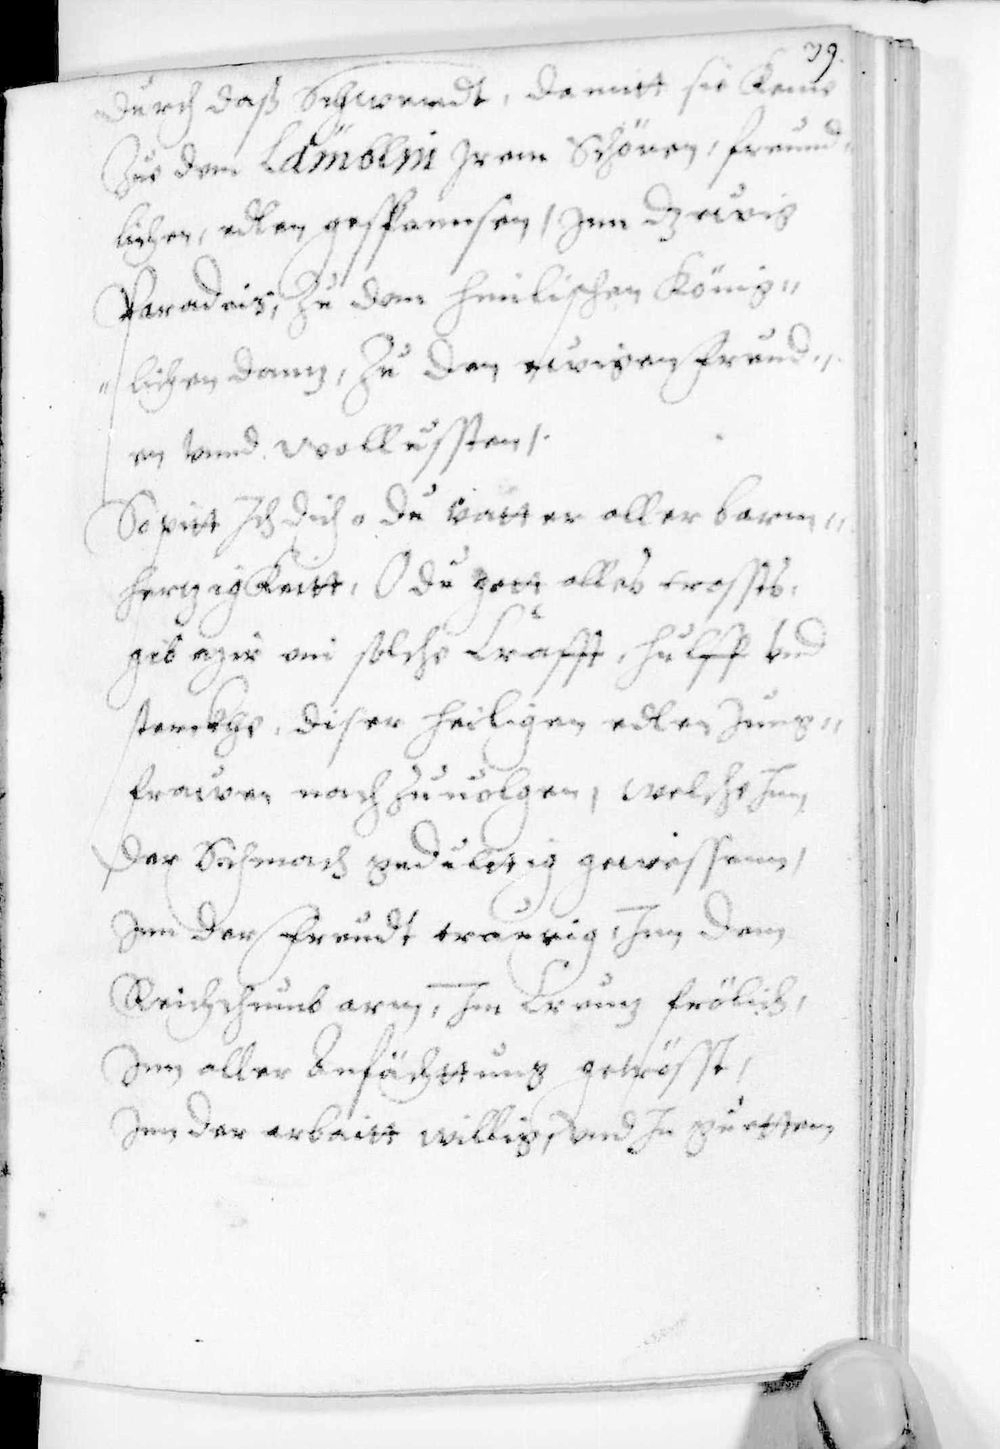 79.
durch daß Schwerdt, damitt sie keme
Zue dem Lämblin Jrem Schönen, freund„
lichen, edlen gespannsen / Jnn dz ewig
Paradeis, Zu dem himlischen König„
„lichen dantz, Zu den ewigen freud„
en vnnd wollussten /.
So pitt Jch dich o du vatter aller barm„
hertzigkeitt, O du gott alles trossts,
gib mir ein solche Crafft, hulff vnd
sterckhe, diser heiligen edlen Jung„
frawen nach zuuolgen, welche Jnn
der Schmach gedultig gewessenn /
Jnn der freudt traurig, Jnn dem
Reichthumb arm, Jm Creutz frölich,
Jnn aller Anfächttung getrösst,
Jnn der arbeitt willig, vnd In guetten